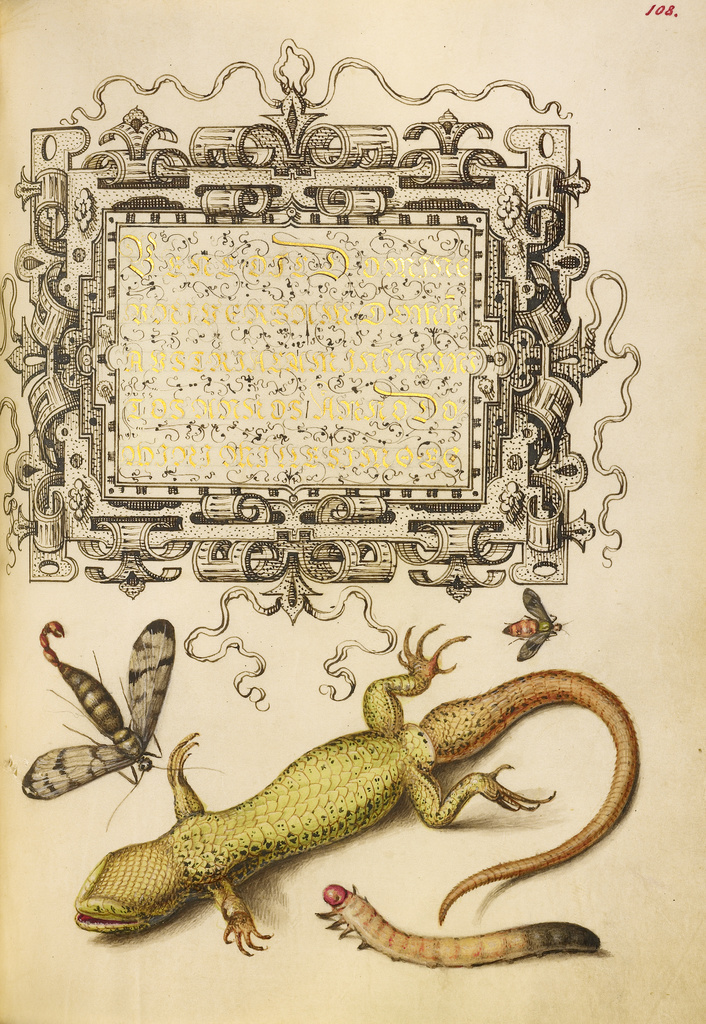 108.
BENEDIC DOMINE
VNIVERSAM DOMṼ
AVSTRIACAM IN INFINI
TOS ANNOS ANNO DO
MINI MILLESIMO